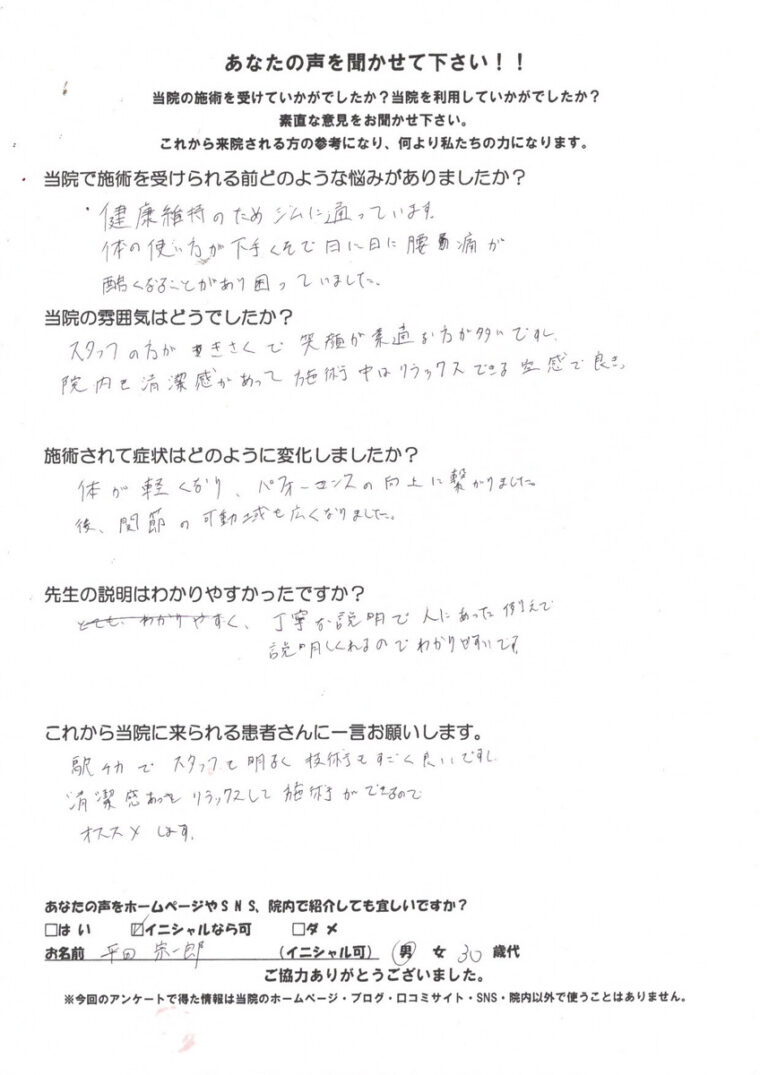 あなたの声を聞かせて下さい！！
当院の施術を受けていかがでしたか？当院を利用していかがでしたか？
素直な意見をお聞かせ下さい。
これから来院される方の参考になり、何より私たちの力になります。
当院で施術を受けられる前どのような悩みがありましたか？
健康維持のためジムに通っています。
体の使い方が下手くそで日に日に腰痛が
酷くなることがあり困っていました。
当院の雰囲気はどうでしたか？
スタッフの方がきさくで笑顔が素適な方が多いですし、
院内も清潔感があって施術中はリラックスできる空感で良き。
施術されて症状はどのように変化しましたか？
体が軽くなり、パフォーマンスの向上に繋がりました。
後、関節の可動域も広くなりました。
先生の説明はわかりやすかったですか？
とても、わかりやすく、丁寧な説明で人にあった例えで
説明してくれるのでわかりやすいです。
これから当院に来られる患者さんに一言お願いします。
駅チカでスタッフも明るく技術もすごく良いですし
清潔感あってリラックスして施術ができるので
オススメします。
あなたの声をホームページやSNS、院内で紹介しても宜しいですか？
□はい ☑イニシャルなら可 □ダメ
お名前 平田 宗一郎 （イニシャル可） 男 女 30 歳代
ご協力ありがとうございました。
※今回のアンケートで得た情報は当院のホームページ・ブログ・口コミサイト・SNS・院内以外で使うことはありません。